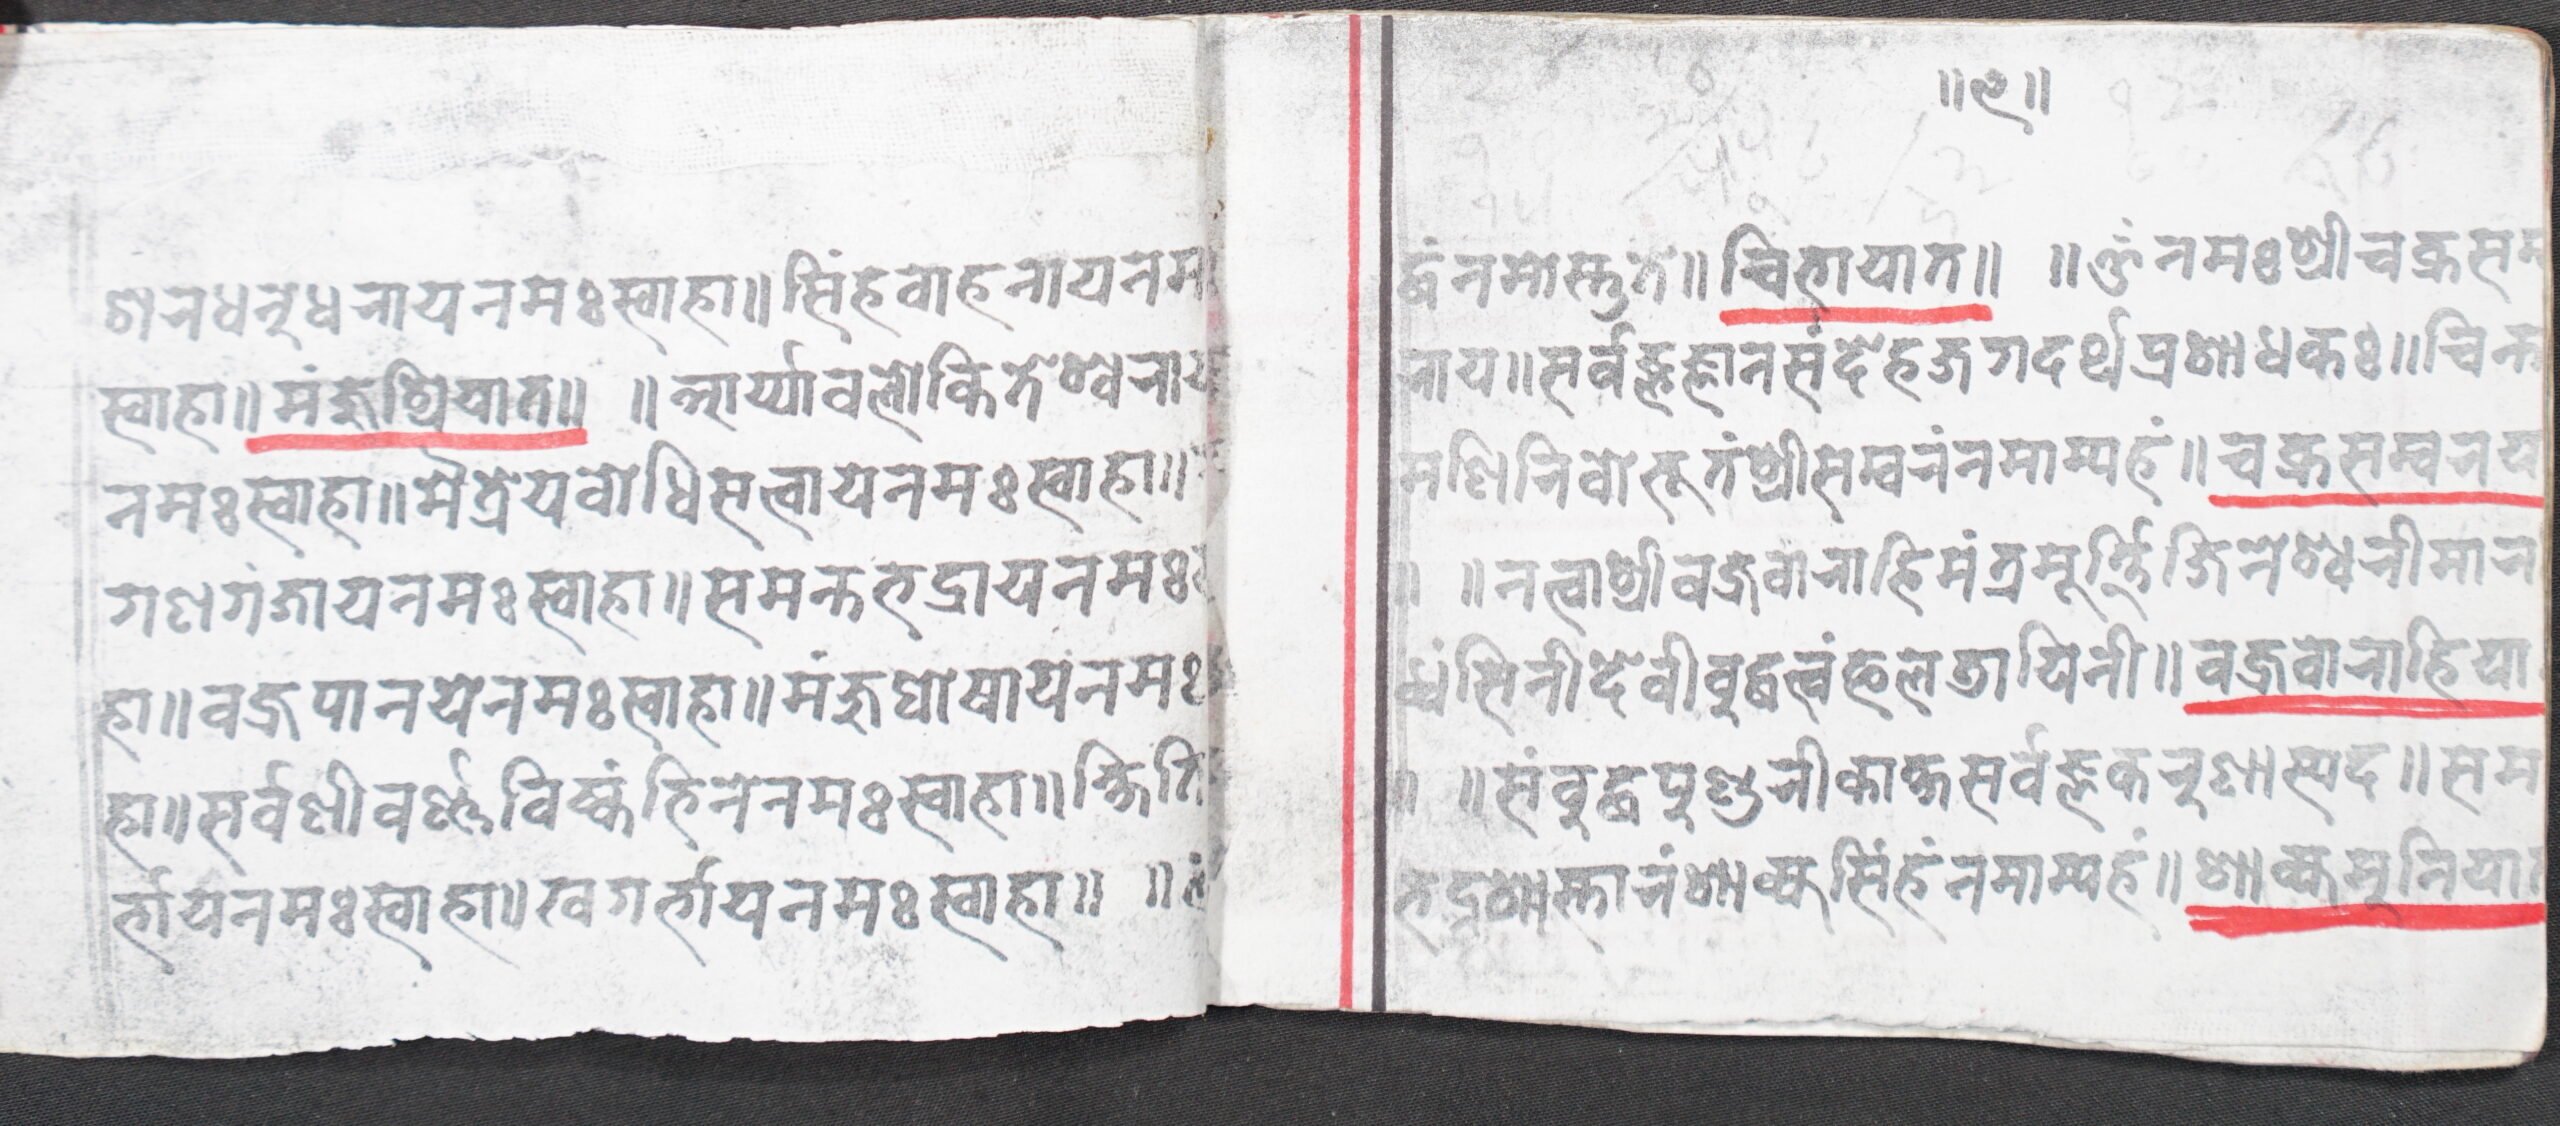 शरधनूधरायनमःस्वाहा॥सिंहवाहनायनम
स्वाहा॥मंजुश्रियात॥ ॥आर्य्यावलोकितेश्वराय
नमःस्वाहा॥मैत्रेयबोधिसत्वायनमःस्वाहा॥
गणगंजायनमःस्वाहा॥समन्तभद्रायनमः
हा॥वज्रपानयेनमःस्वाहा॥मंजुघोषायनमः
हा॥सर्वणीवर्ण्णविष्कंभिनेनमःस्वाहा॥क्षिति
र्भायनमःस्वाहा॥खगर्भायनमःस्वाहा॥ ॥
॥९॥
द्धंनमोस्तुते॥चिभायात॥ ॥ॐनमःश्रीचक्रसम
राय॥सर्वज्ञज्ञानसंदेहजगदर्थप्रशाधकः॥चिन्त
मणिरिवोद्भूतंश्रीसम्वरंनमाम्यहं॥चक्रसम्वरय
॥ ॥नत्वाश्रीवज्रवाराहिमंत्रमूर्त्तिजिनेश्वरीमार
ध्वंसिनीदेवीबुद्धत्वंफलदायिनी॥वज्रवाराहिया
॥ ॥संबुद्धपुण्डरीकाक्षसर्वज्ञकरुणास्पद॥सम
भद्रशास्तारंशाक्यसिंहंनमाम्यहं॥शाक्यमूनिया